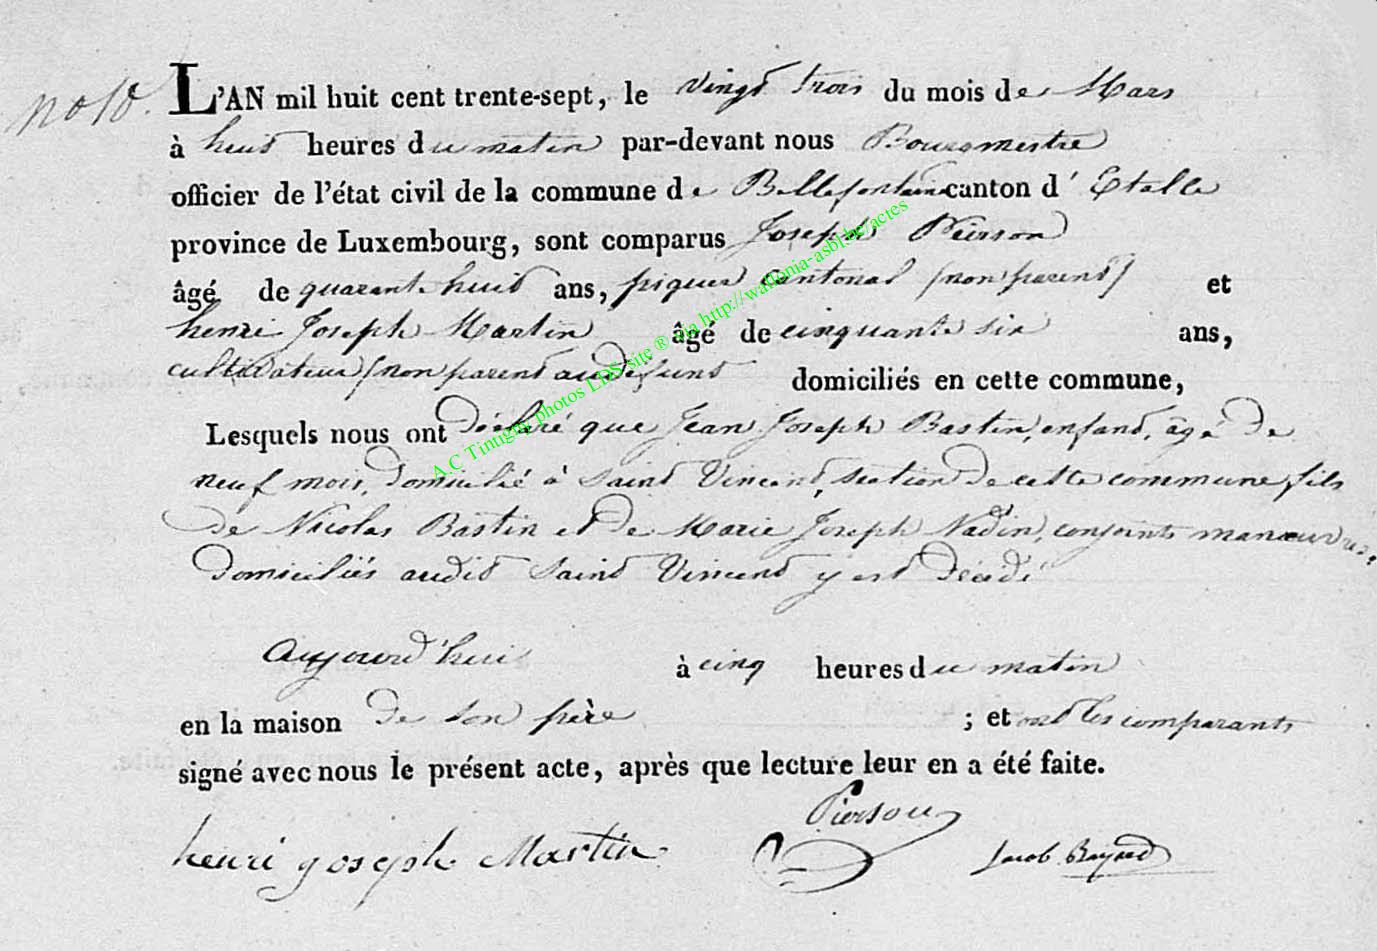 no 10.
L'AN mil huit cent trente-sept, le vingt trois du mois de Mars
à huit heures du matin par-devant nous Bourgmestre
officier de l'état civil de la commune de Bellefontaine canton d'Etalle
province de Luxembourg, sont comparus Joseph Pierson
âgé de quarante huit ans, piqueur cantonal (non parent) et
henri Joseph Martin âgé de cinquante six ans,
cultivateur (non parent au défunt domiciliés en cette commune,
Lesquels nous ont déclaré que Jean Joseph Bastin, enfant, âgé de
neuf mois, domicilié à Saint Vincent, section de cette commune, fils
de Nicolas Bastin et de Marie Joseph Nadin, conjoints manœuvres,
domiciliés audit Saint Vincent y est décédé
aujourd'hui à cinq heures du matin
en la maison de son père ; et ont les comparants
signé avec nous le présent acte, après que lecture leur en a été faite.
Pierson
henri joseph Martin Jacob
A.C Tintigny photos LDS site ® via http://wallonia-asbl.be/actes